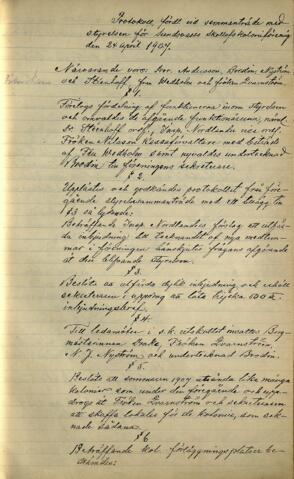 Protokoll, fördt vid sammanträde med
styrelsen för Sundsvalls skollofskoloniförening
den 24 april 1907.
Närvarande voro: Hrr Andersson, Brodin, Nyström
och Stenhoff, fru Wedholm och fröken Granström.
§ 1.
Förlogs fördelning af funktionerna inom styrelsen
och omvaldes de afgående funktionärerna, nämл.
Dr Stenhoff ordf., Insp. Nordlander vice ordf.
Fröken Nilsson Kassaförvaltare med biträde
af Fru Wedholm samt nyvaldes undertecknad
Brodin till föreningens sekreterare.
§ 2.
Upplästes och godkändes protokollet från före-
gående styrelsesammanträde med ett tillägg till
§ 3 så lydande:
Beträffande Insp. Nordlanders förslag att utfär-
da inbjudning till tecknandet af nya medlem-
mar i föreningen hänskjutes frågans afgörande
åt den blifvande styrelsen.
§ 3.
Beslöts att utfärda dylik inbjudning och erhöll
sekreteraren i uppdrag att låta trycka 100 ex.
inbjudningsbref.
§ 4.
Till ledamöter i s.k. utskottet invaldes Borg-
mästerinnan Fröken Granström,
N. J. Nyström och undertecknad Brodin.
§ 5.
Beslöts att sommaren 1907 utsända lika många
kolonier som under det föregående och upp-
drogs åt Fröken Granström och sekreteraren
att skaffa lokaler för de kolonier, som sak-
nade sådana.
§ 6
Beträffande kol. förläggningsplatser be-
stämdes: